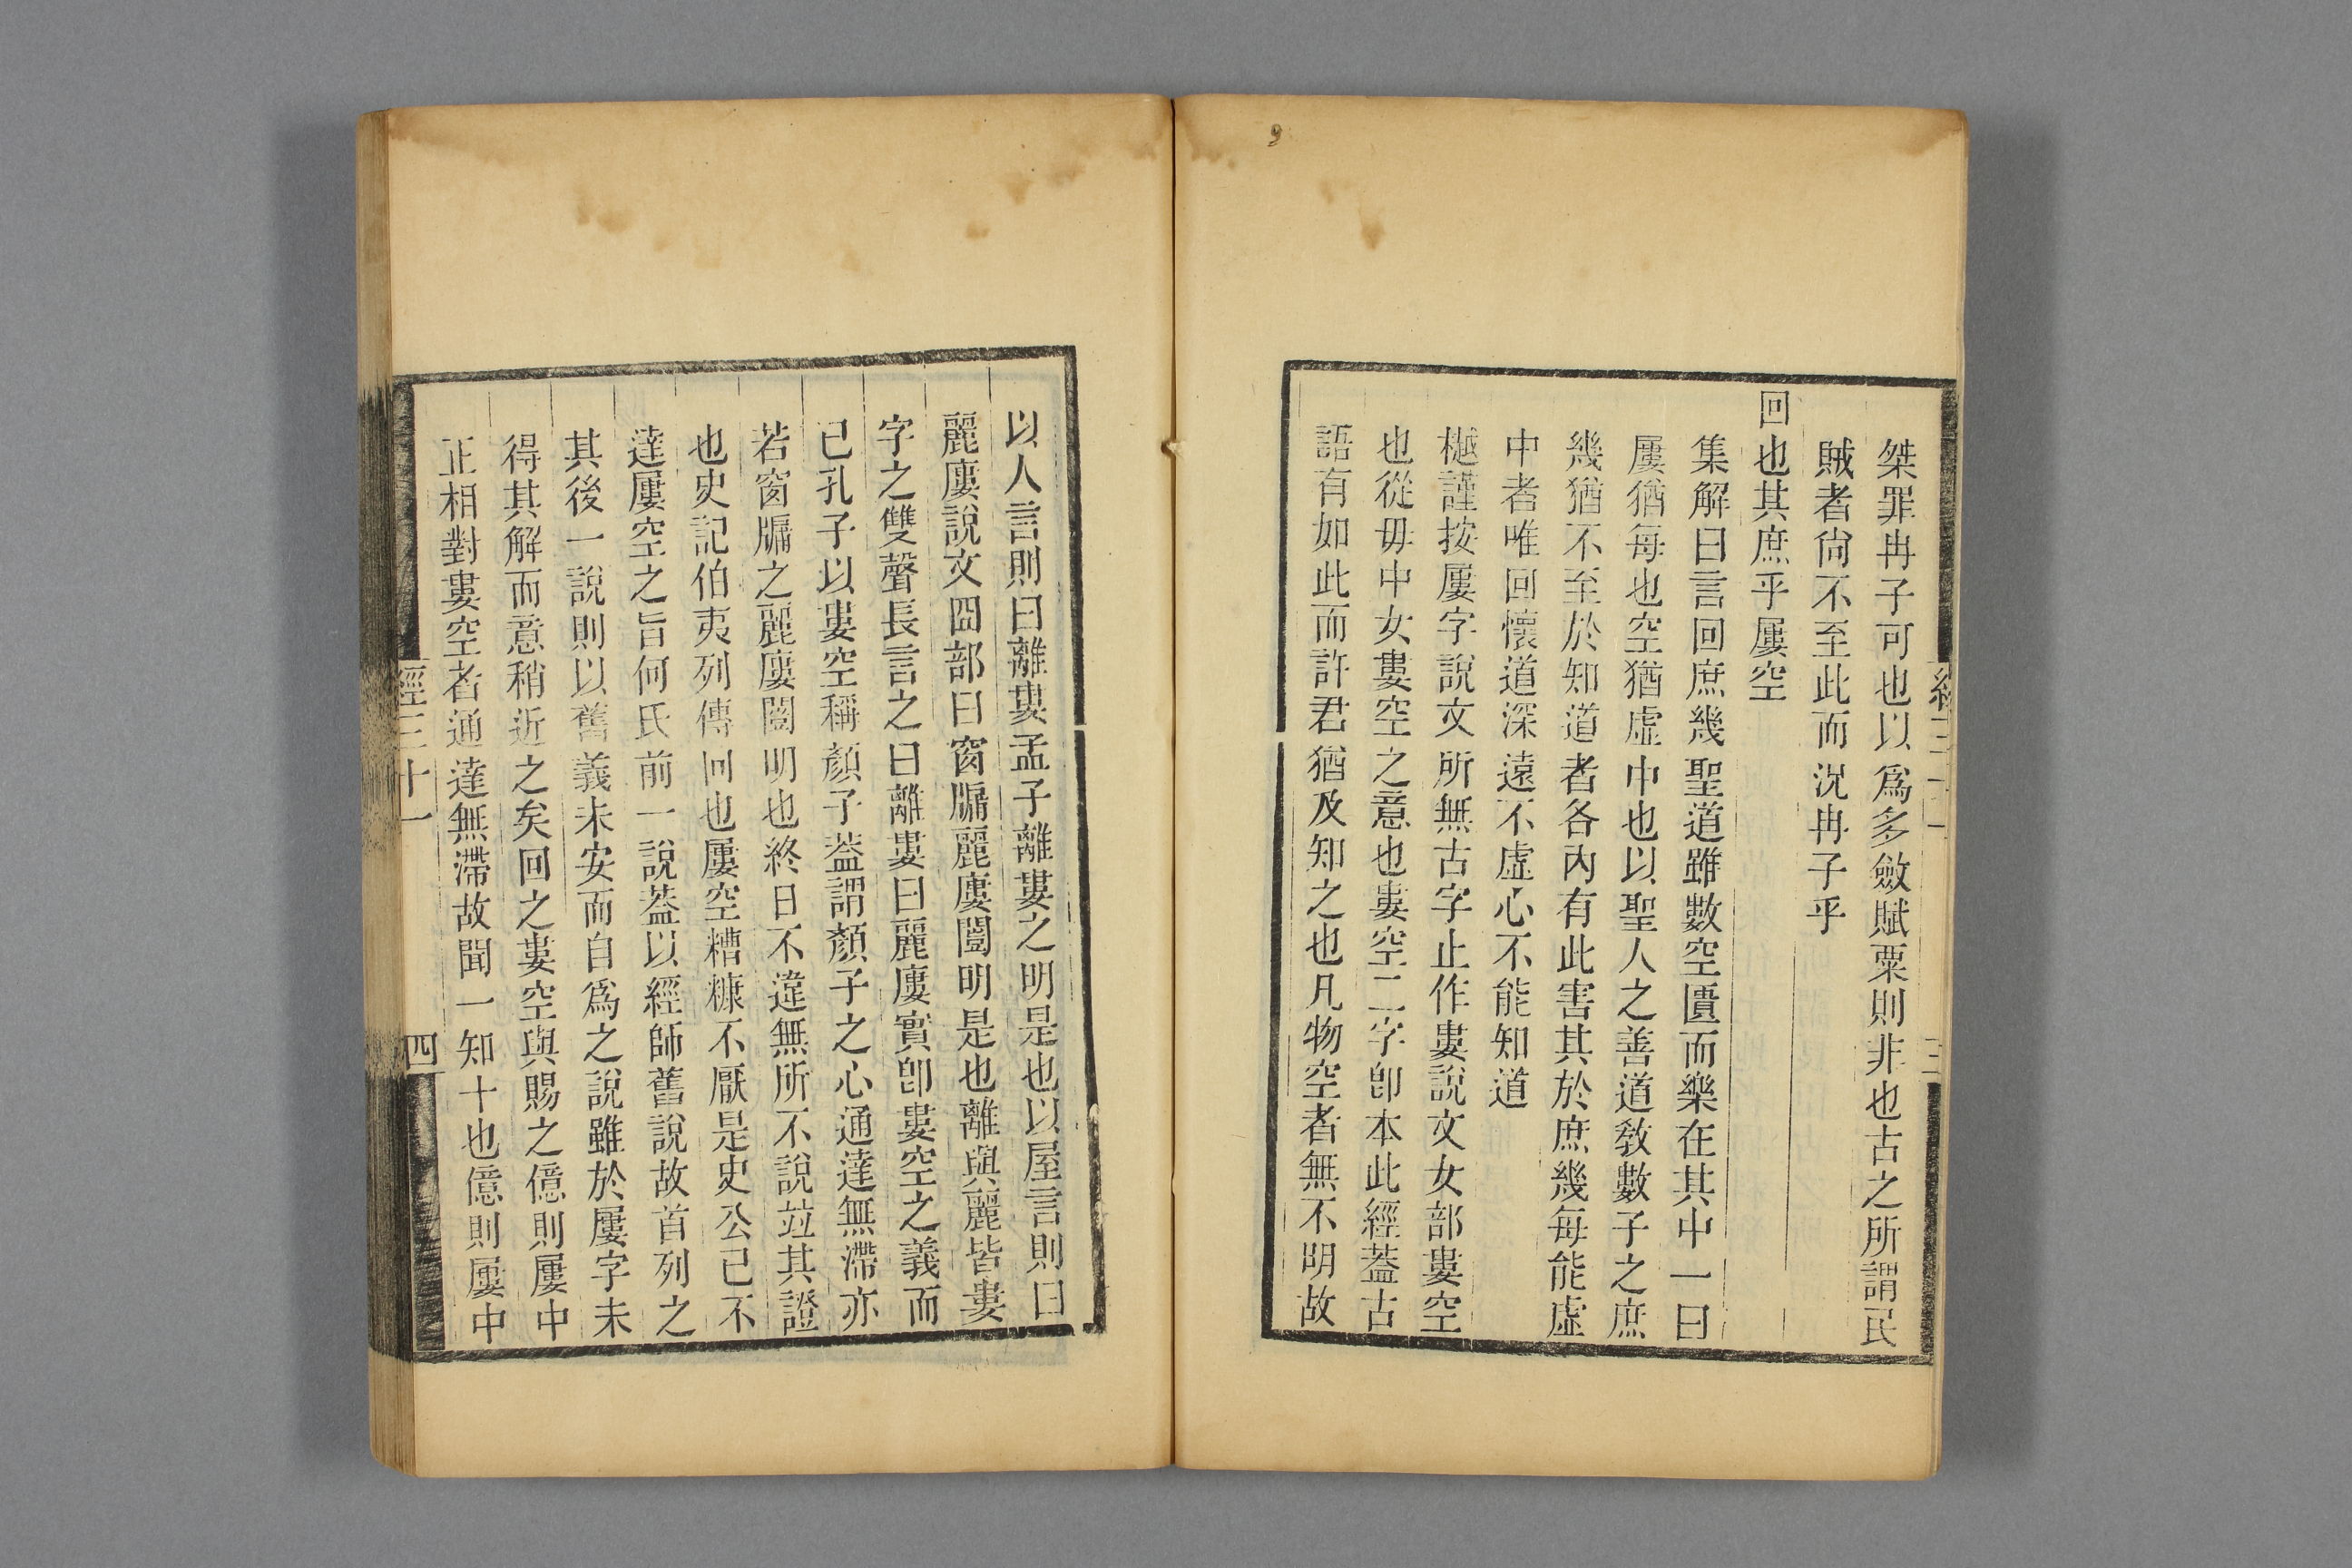 桀罪冉子可也以爲多斂賦粟則非也古之所謂民
賊者尙不至此而況冉子乎
回也其庶乎屢空
集解曰言回庶幾聖道雖數空匱而樂在其中一曰
屢猶每也空猶虛中也以聖人之善道敎數子之庶
幾猶不至於知道者各內有此害其於庶幾每能虛
中者唯回懷道深遠不虛心不能知道
樾謹按屢字說文所無古字止作婁說文女部婁空
也從毋中女婁空之意也婁空二字卽本此經蓋古
語有如此而許君猶及知之也凡物空者無不明故
以人言則曰離婁孟子離婁之明是也以屋言則曰
麗廔說文囧部曰窗牖麗廔闓明是也離與麗皆婁
字之雙聲長言之曰離婁曰麗廔實卽婁空之義而
已孔子以婁空稱顏子蓋謂顏子之心通達無滯亦
若窗牖之麗廔闓明也終日不違無所不說竝其證
也史記伯夷列傳回也屢空糟糠不厭是史公已不
達屢空之旨何氏前一說蓋以經師舊說故首列之
其後一說則以舊義未安而自爲之說雖於屢字未
得其解而意稍近之矣回之婁空與賜之億則屢中
正相對婁空者通達無滯故聞一知十也億則屢中
經三十一
四